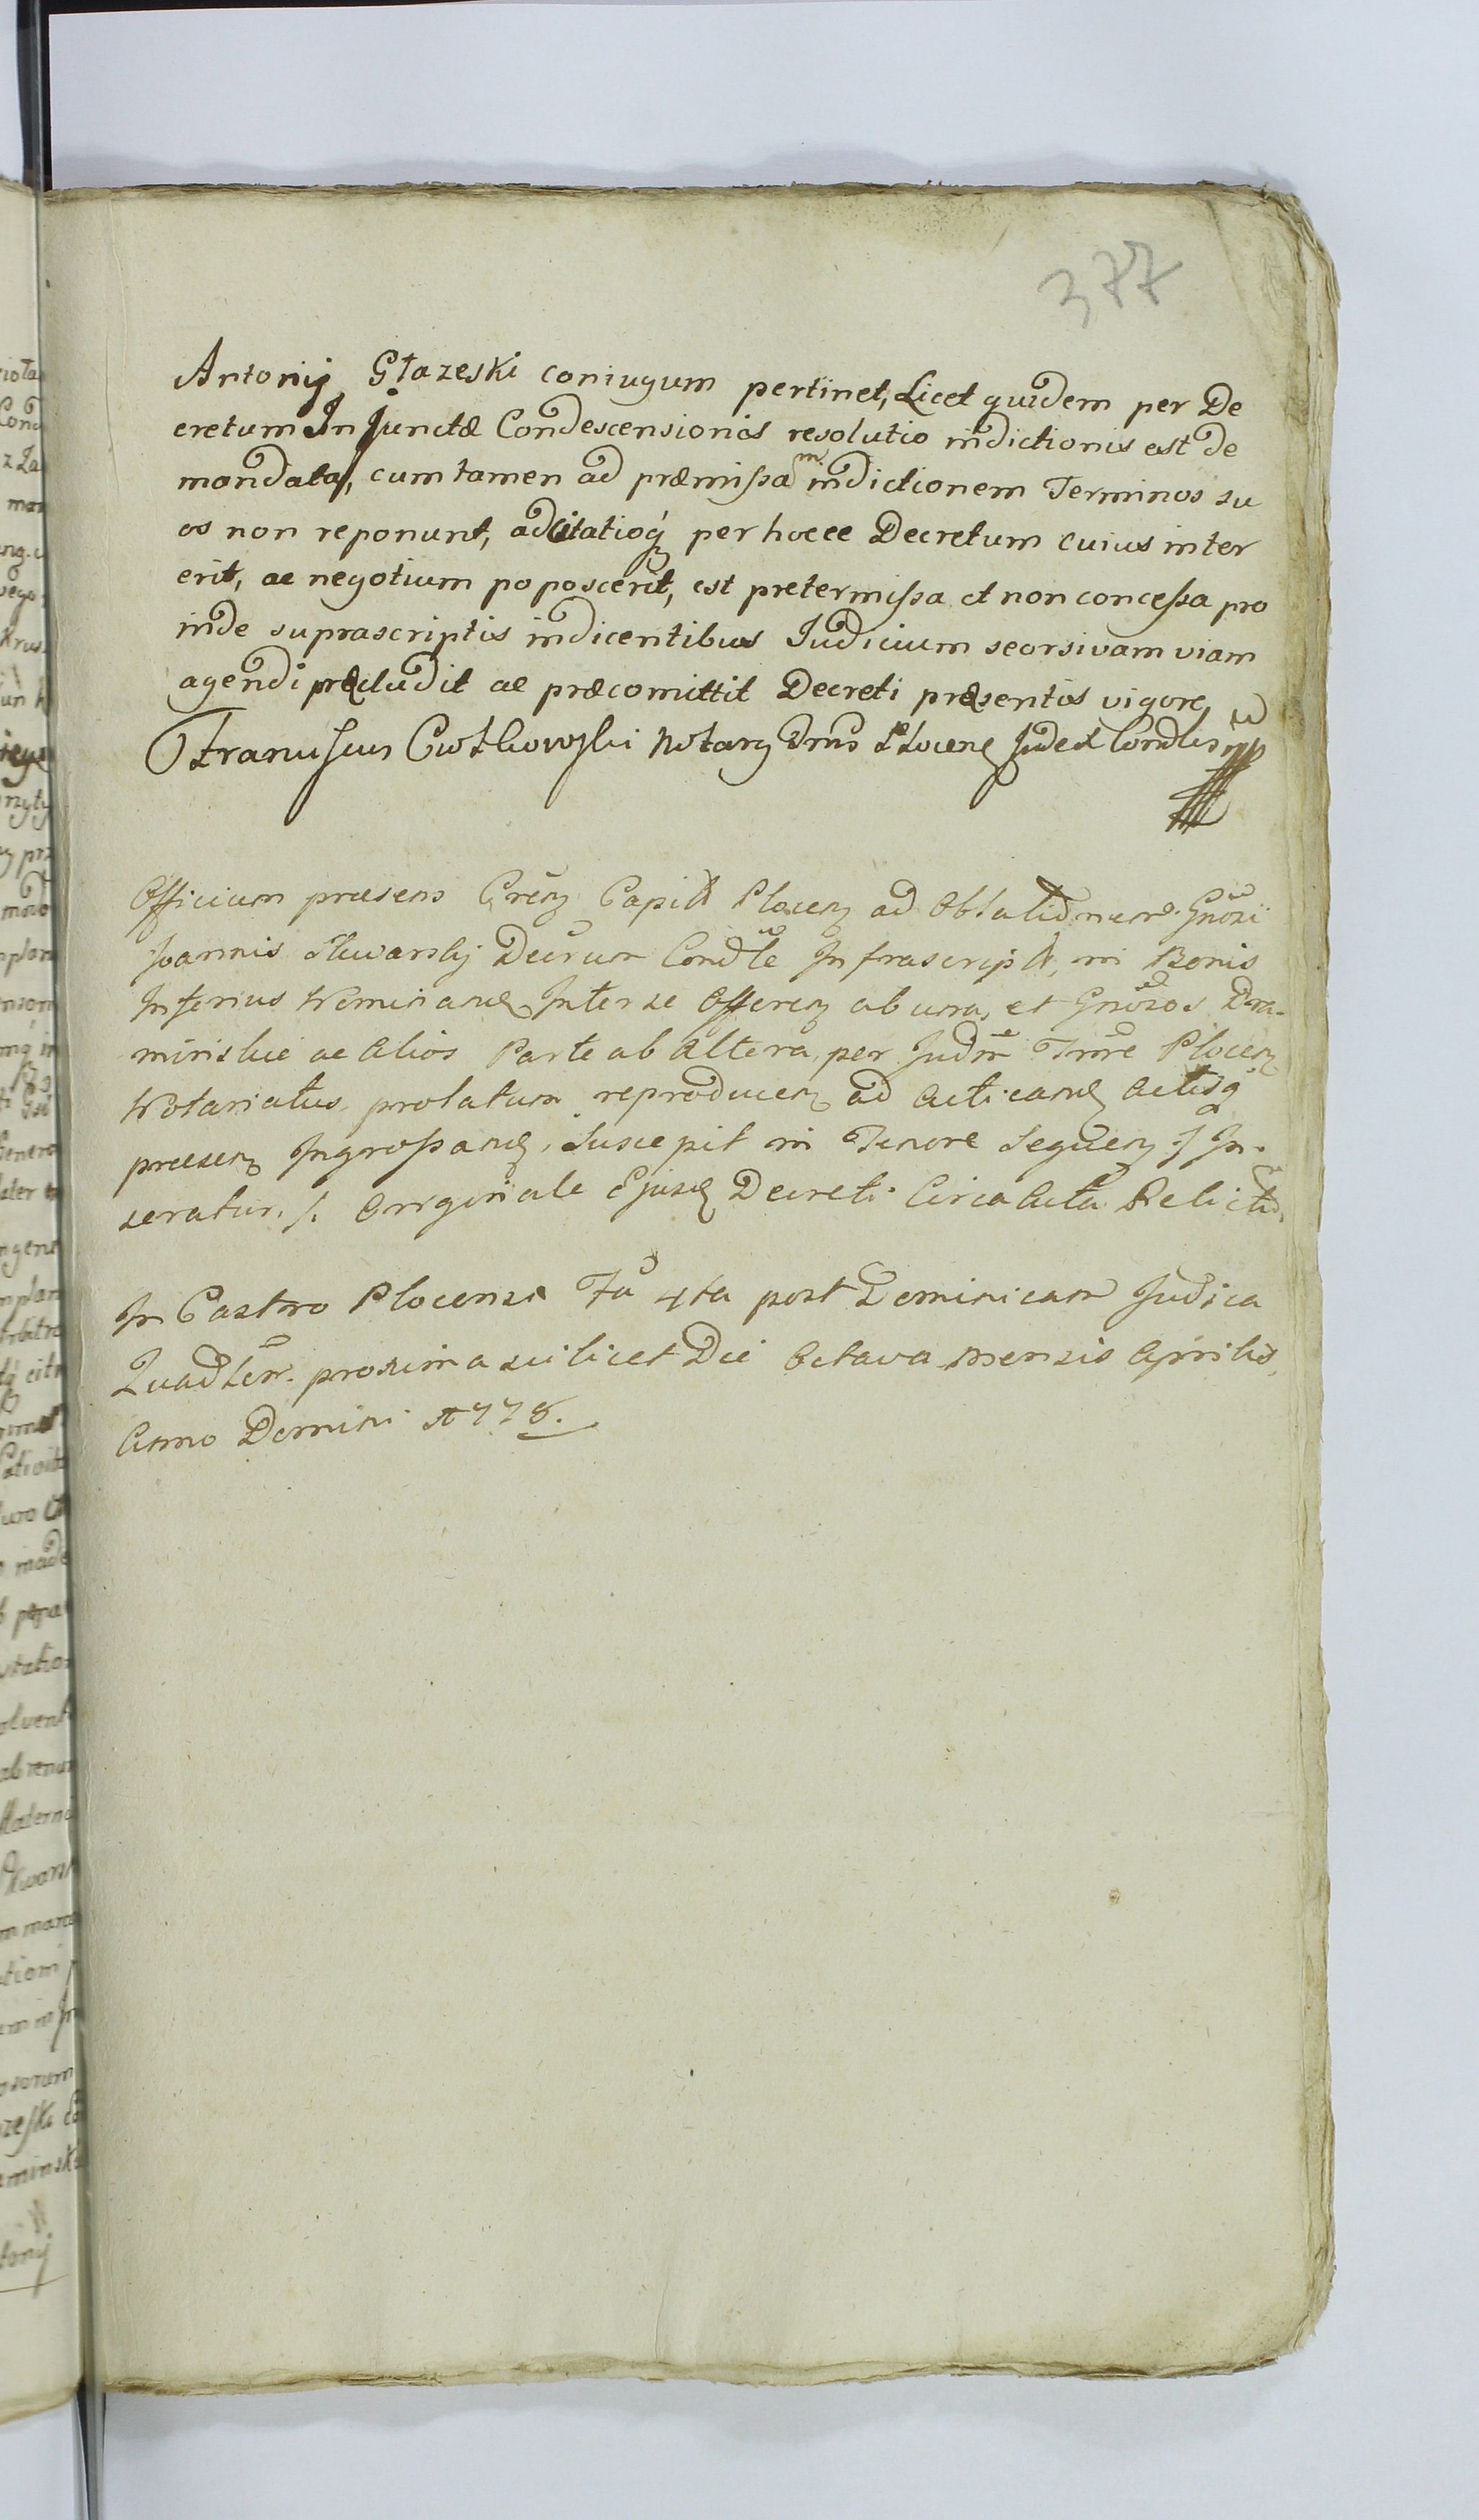 377
Antonij Głazeski coniugum pertinet, Licet quidem per De
cretum Injunctæ Condescensionis resolutio indictionis est de
mandata, cum tamen ad præmissam indictionem Terminos su
os non reponunt, adcitatioq per hocce Decretum cuius inter
erit, ac negotium poposcerit, est pretermissa et non concessa pro
inde suprascriptis indicentibus Judicium seorsivam viam
agendi præcludit ac præcomittit Decreti præsentis vigore
Franciscus Cwtkowski Notarq Trris Płocenq Judex Condlis mp
Officium præsens Capit Plocen ad Gnosi
Joannis Decrum Condle Infrascript, in Bonis
Inferius Nominan Inter se Offeren ab una, et Gnosos Dra-
minskie ac Alios Parte ab Altera, per Judm Trre Plocen
Notariatus prolatum reproducen ad Acticand Actisq
præsen Ingrossand, Suscepit in Tenore Sequen ./. In-
seratur ./. Originale Ejusd Decreti Circa Acta Relict.
In Castro Plocensi Fa 4ta post Dominicam Judica
Quadlem. proxima scilicet Die Octava Mensis Aprilis
Anno Domini 1778.